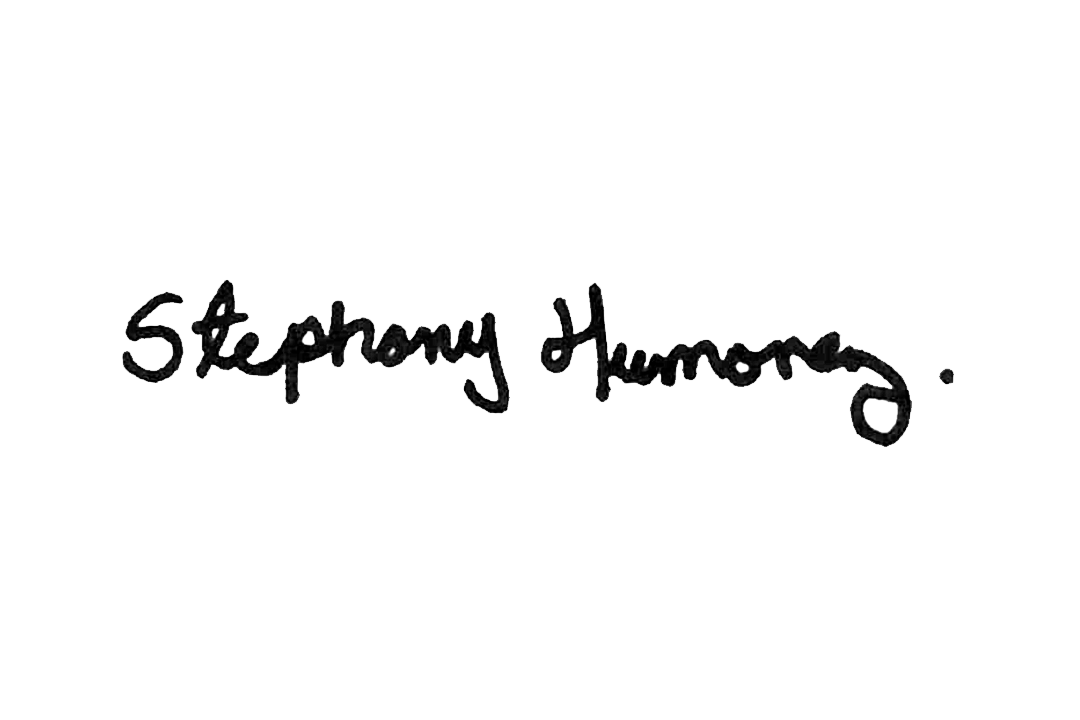 Stephany Humoney.